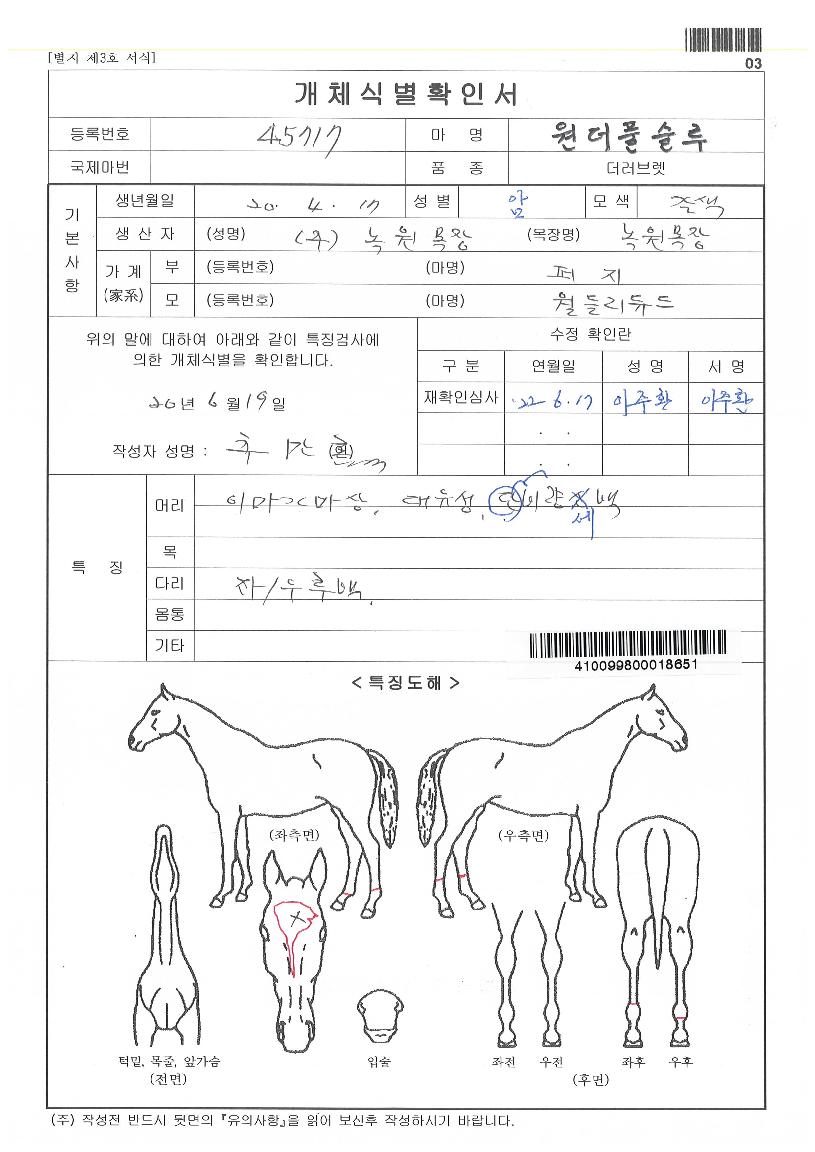 [별지 제3호 서식]
03
개체식별확인서
등록번호 45717 마 명 원더풀슬루
국제마번 품 종 더러브렛
기본사항
생년월일 20. 4. 17 성 별 암 모 색
생 산 자 (성명) (주) 녹원목장 (목장명) 녹원목장
가 계 (家系) 부 (등록번호) (마명) 퍼지
모 (등록번호) (마명) 월들리듀드
위의 말에 대하여 아래와 같이 특징검사에
의한 개체식별을 확인합니다.
20년 6월 19일
작성자 성명 :
수정 확인란
구 분 연월일 성 명 서 명
재확인심사 '22 6. 17 이주환 이주환
. .
. .
특 징
머리 이마 대유성, 비량 세 백
목
다리 좌/우후백.
몸통
기타
410099800018651
< 특징도해 >
(좌측면) (우측면)
턱밑, 목줄, 앞가슴 입술 좌전 우전 좌후 우후
(전면) (후면)
(주) 작성전 반드시 뒷면의 『유의사항』을 읽어 보신후 작성하시기 바랍니다.